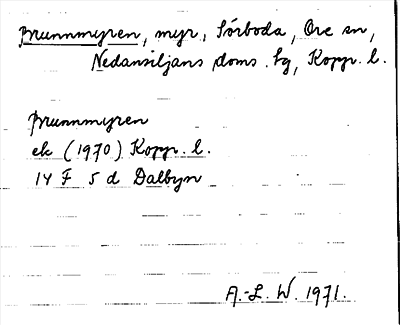 Brunnmyren, myr, Sörboda, Ore sn,
Nedansiljans doms. tg, Kopp. l.
Brunnmyren
ek (1970) Kopp. l.
14 F 5 d Dalbyn
A.-L. W 1971.